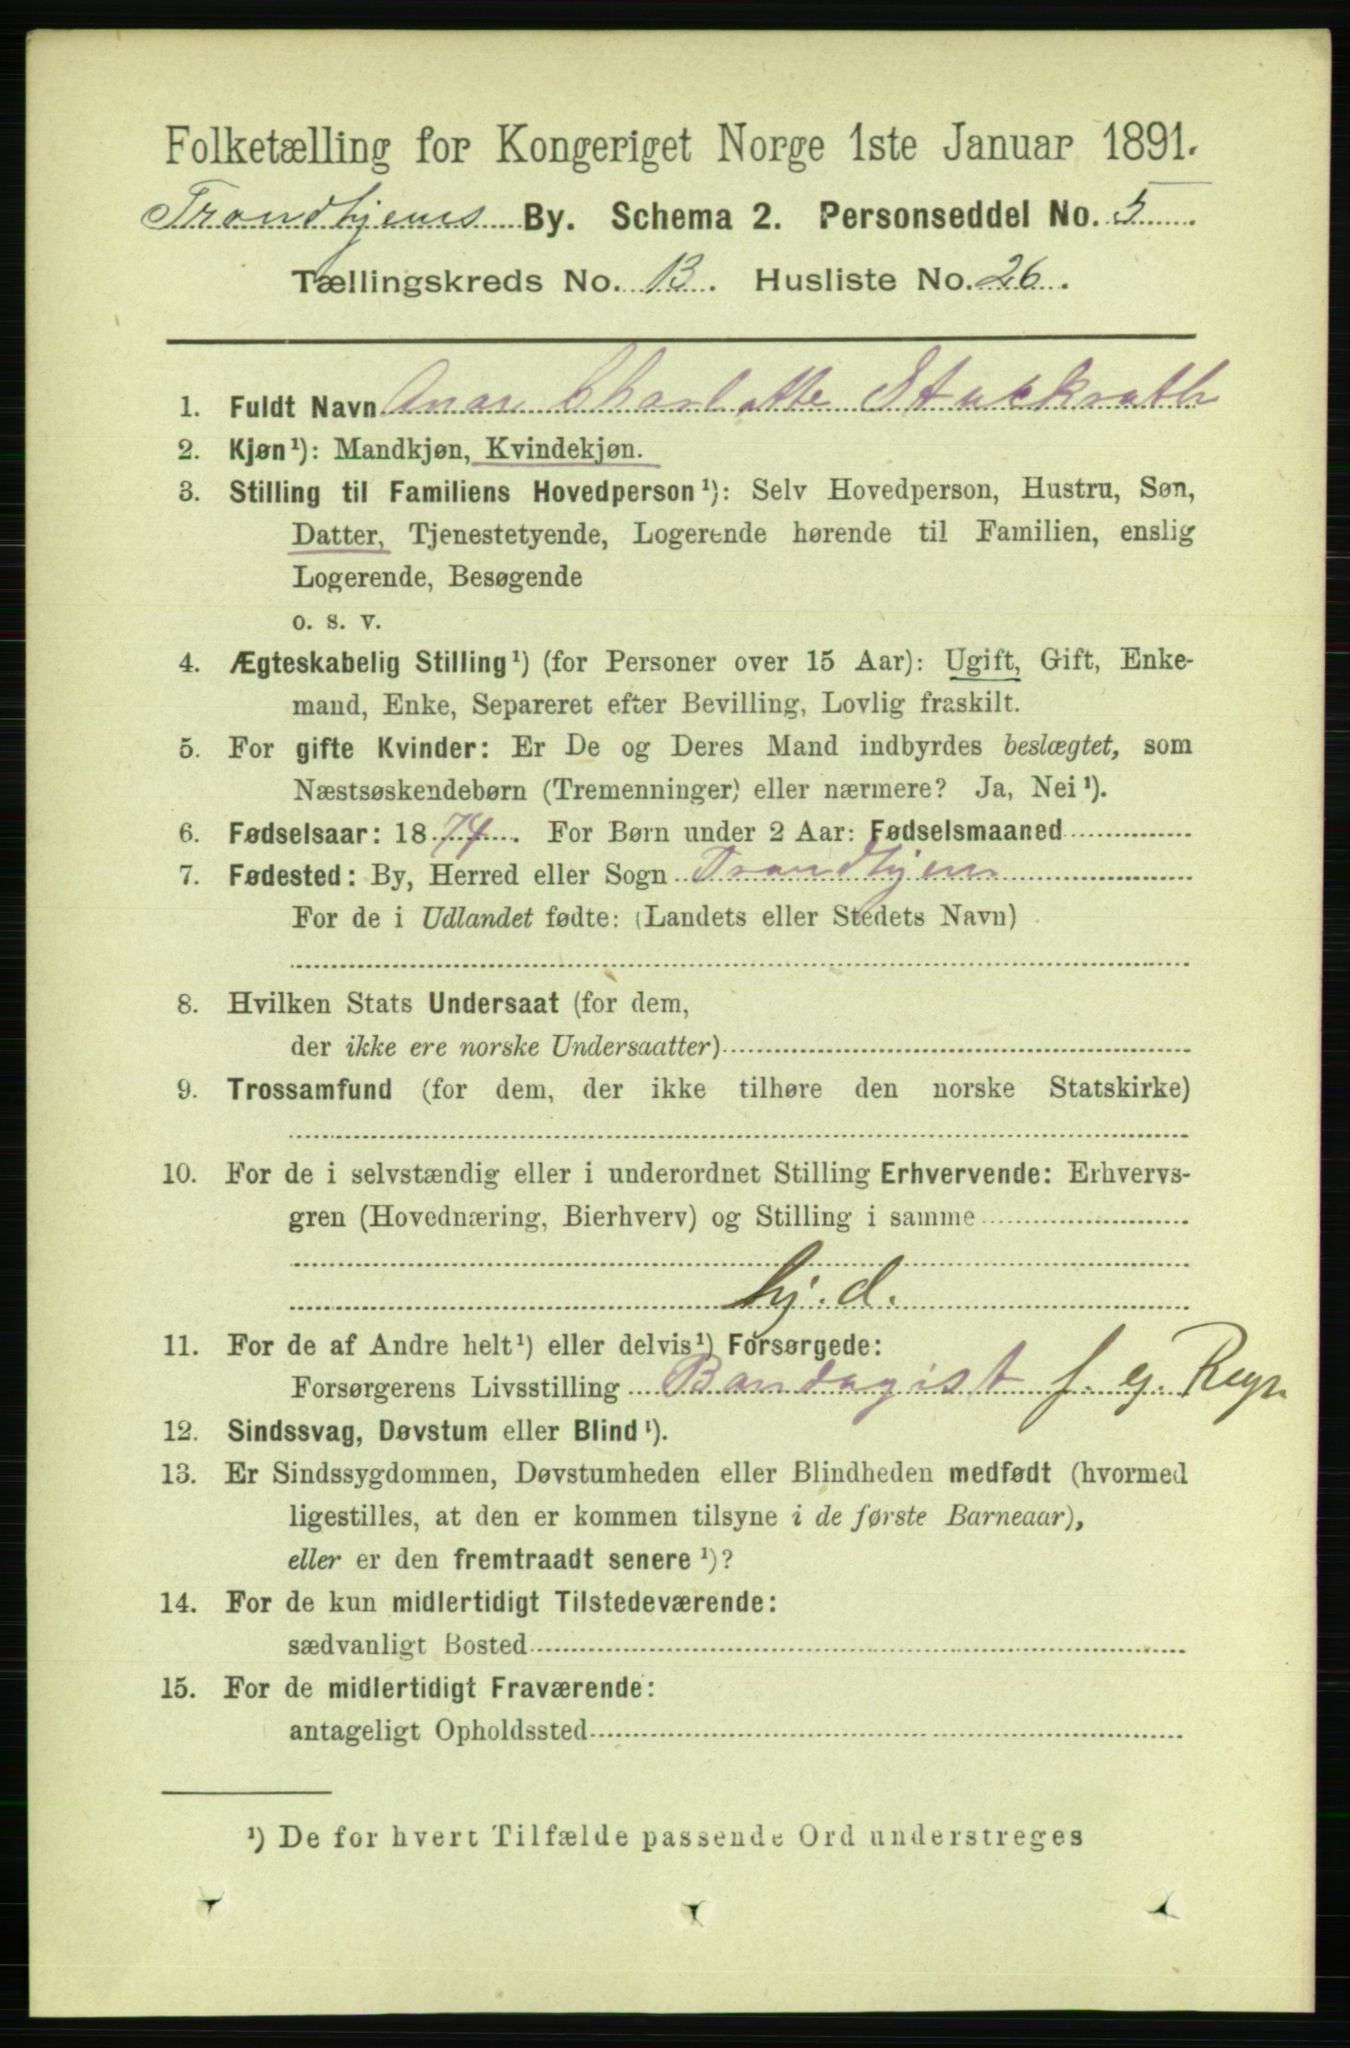 Folketælling for Kongeriget Norge 1ste Januar 1891.
Trondhjems By. Schema 2. Personseddel No. 5
Tællingskreds No. 13. Husliste No. 26.
1. Fuldt Navn Anna Charlotte Stuckrath
2. Kjøn¹): Mandkjøn, Kvindekjøn.
3. Stilling til Familiens Hovedperson¹): Selv Hovedperson, Hustru, Søn,
Datter, Tjenestetyende, Logerende hørende til Familien, enslig
Logerende, Besøgende
o. s. v.
4. Ægteskabelig Stilling¹) (for Personer over 15 Aar): Ugift, Gift, Enke-
mand, Enke, Separeret efter Bevilling, Lovlig fraskilt.
5. For gifte Kvinder: Er De og Deres Mand indbyrdes beslægtet, som
Næstsøskendebørn (Tremenninger) eller nærmere? Ja, Nei¹).
6. Fødselsaar: 1874. For Børn under 2 Aar: Fødselsmaaned
7. Fødested: By, Herred eller Sogn Trondhjem
For de i Udlandet fødte: (Landets eller Stedets Navn)
8. Hvilken Stats Undersaat (for dem,
der ikke ere norske Undersaatter)
9. Trossamfund (for dem, der ikke tilhøre den norske Statskirke)
10. For de i selvstændig eller i underordnet Stilling Erhvervende: Erhvervs-
gren (Hovednæring, Bierhverv) og Stilling i samme
hj. d.
11. For de af Andre helt¹) eller delvis¹) Forsørgede:
Forsørgerens Livsstilling Bandagist f. eg. Regn
12. Sindssvag, Døvstum eller Blind¹).
13. Er Sindssygdommen, Døvstumheden eller Blindheden medfødt (hvormed
ligestilles, at den er kommen tilsyne i de første Barneaar),
eller er den fremtraadt senere¹)?
14. For de kun midlertidigt Tilstedeværende:
sædvanligt Bosted
15. For de midlertidigt Fraværende:
antageligt Opholdssted
¹) De for hvert Tilfælde passende Ord understreges